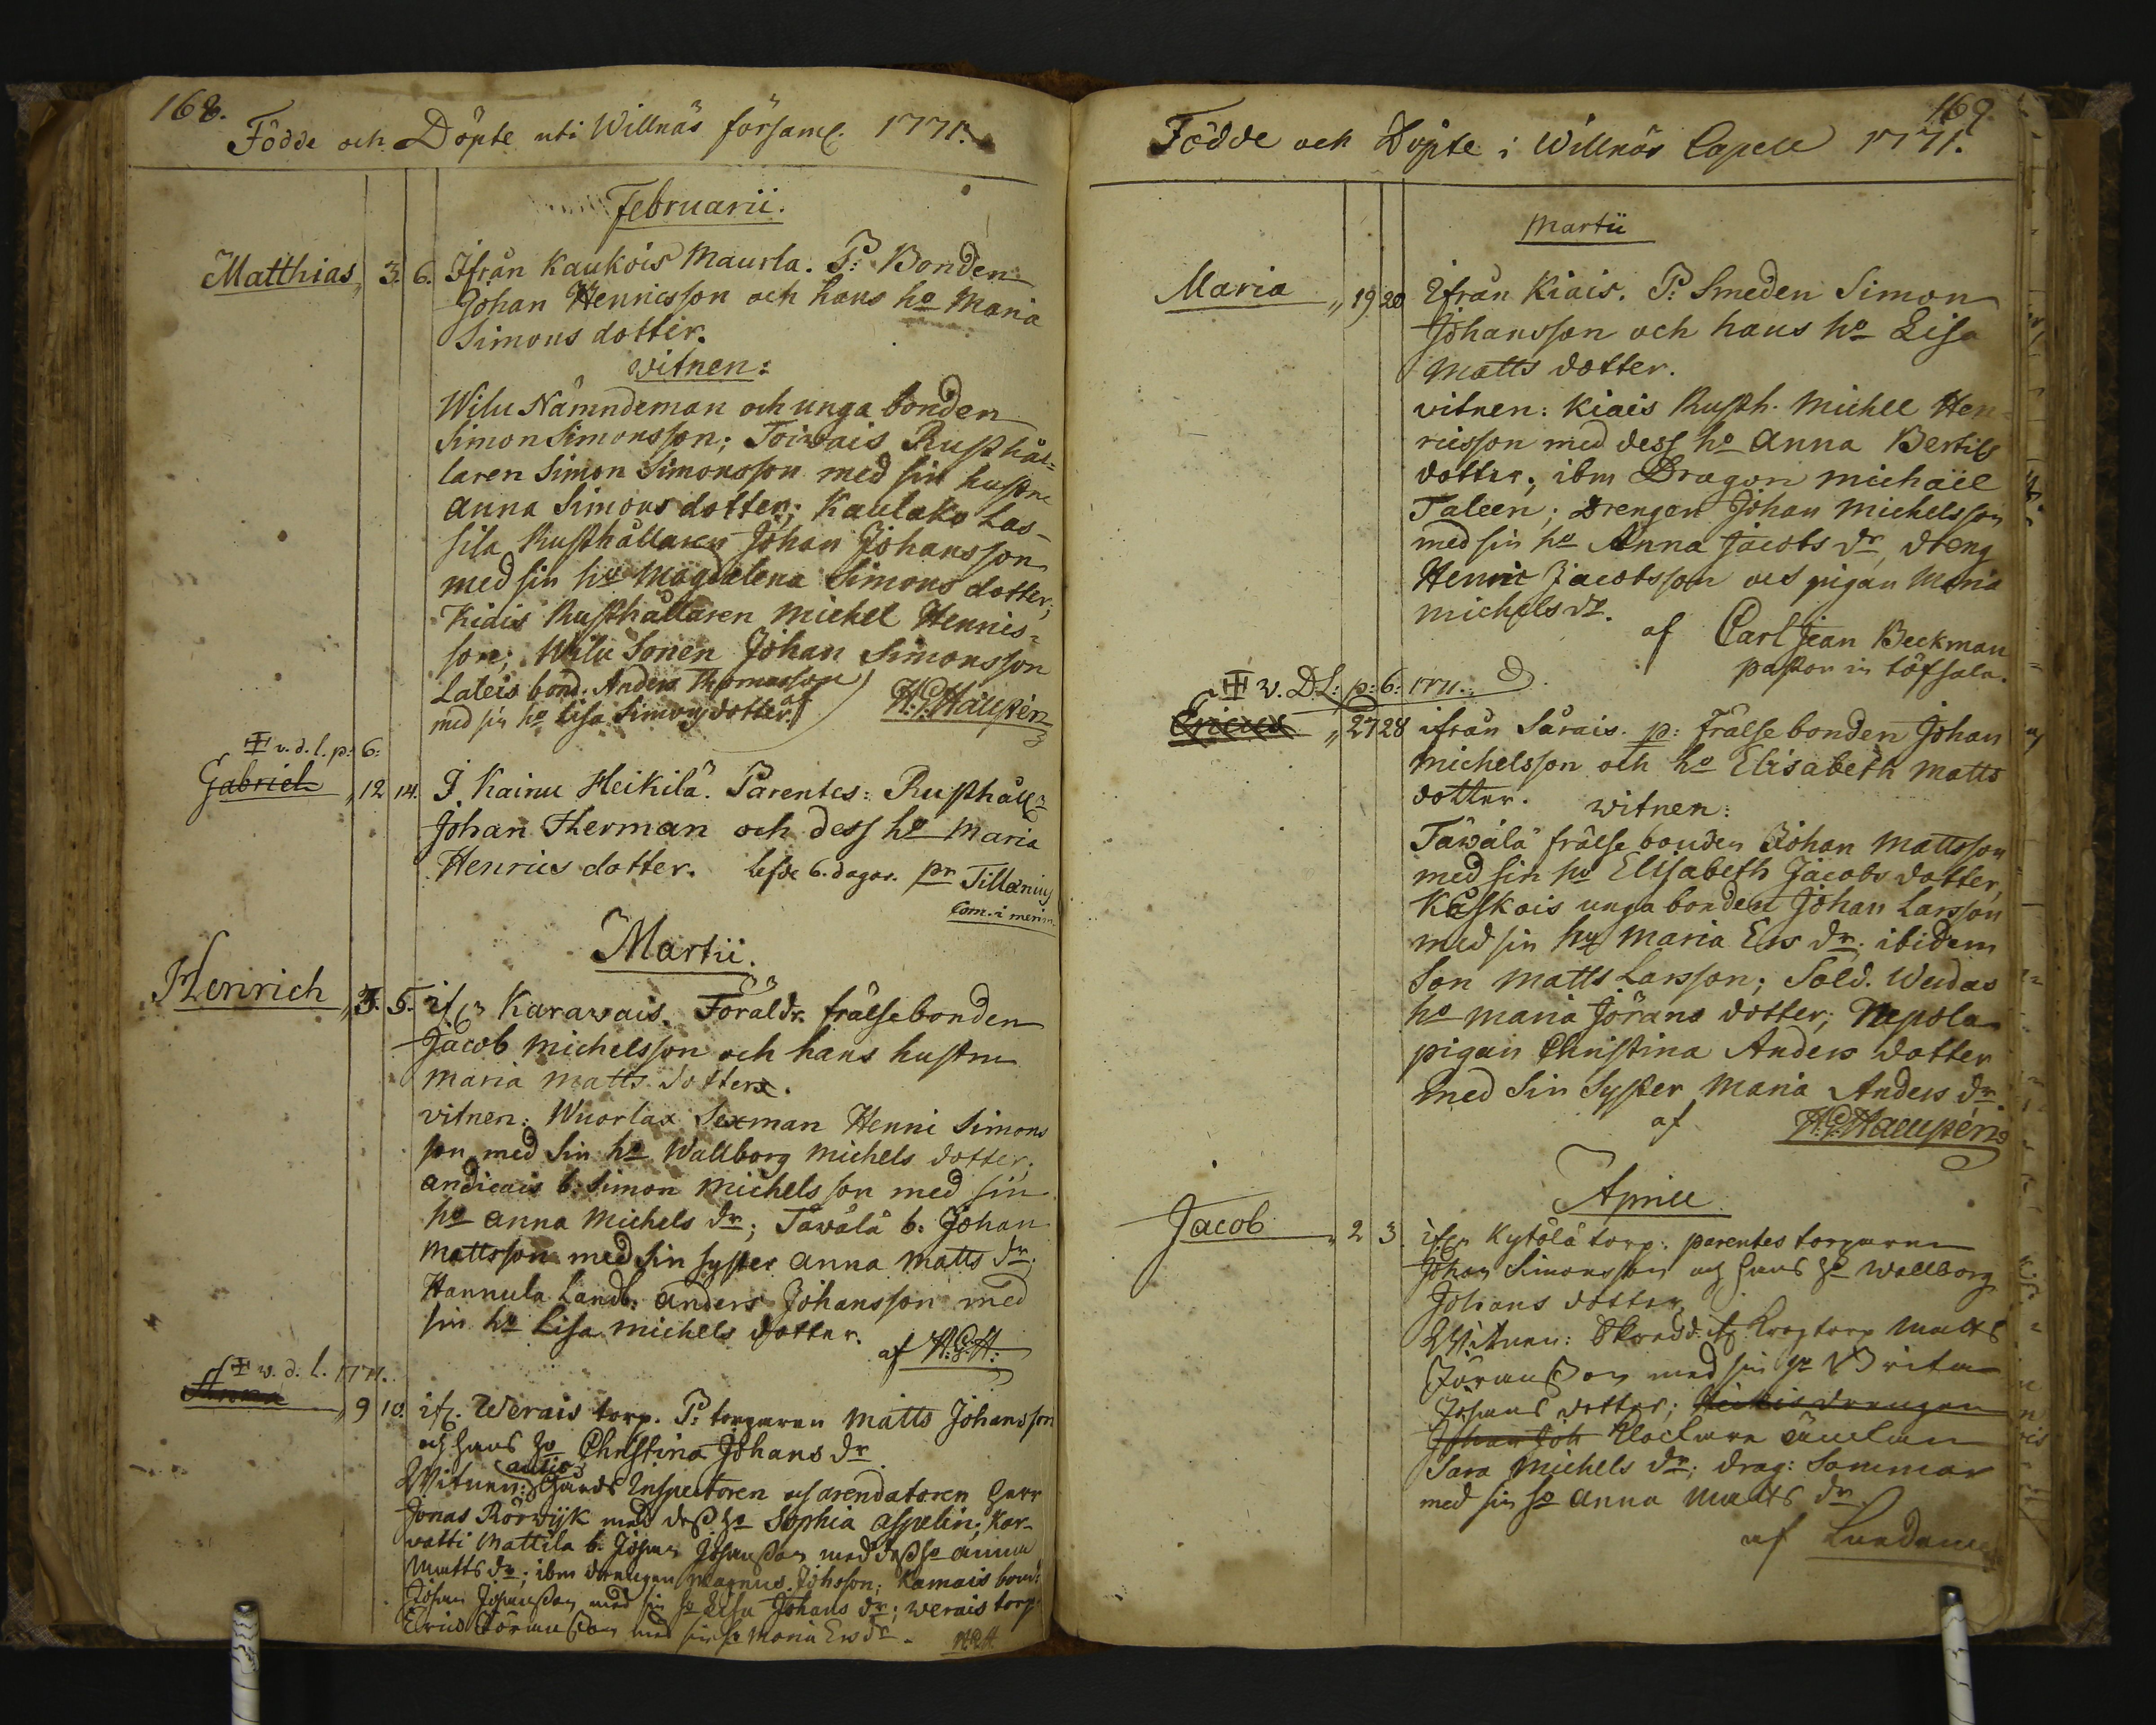 168.
Födde och Döpte uti Willnäs församl. 1771.
Februarii.
Matthias, 3. 6. Ifrån Kaukois Maurla. P: Bonden
Johan Henricsson och hans ho Maria
Simons dotter.
witnen:
Wilu Nämndeman och unga bonden
Simon Simonsson; Toivois Rusthål=
laren Simon Simonsson med sin hustru
Anna Simons dotter; Kaulako Las-
sila Rusthållaren Johan Johansson
med sin ho Magdalena Simons dotter;
Kiais Rusthållaren Michel Henrics=
son; Wilu Sonen Johan Simonsson
Laleis bond. Anders Thomasson
med sin ho Lisa Simons dotter. af H.G. Haustén
v. d. l. p: 6:
Gabriel „ 12 14. I Kainu Heikilä. Parentes: Rusthåll:
Johan Herman och dess ho Maria
Henrics dotter. lefde 6. dagar. pr Tillænius
Com. i merim.
Martii.
Henrich „ 3. 5. ifr. Karavais. Föräldr. frälsebonden
Jacob Michelsson och hans hustru
Maria Matts dotter.
vitnen: Wuorlax Sexman Henric Simons
son med Sin ho Wallborg Michels dotter;
Andicais b. Simon Michelsson med sin
ho Anna Michels dr; Täwälä b: Johan
Mattsson med Sin syster Anna Matts dr;
Hannula Landb. Anders Johansson med
sin ho Lisa Michels dotter. af H.G.H:
v. d. l. 1771.
Anna „ 9 10. ifr. Werais torp. P: torparen Matts Johansson
och hans ho Christina Johans dr
Witnen: Gårds Inspectoren och arendatoren Herr
Jonas Rörwijk med dess ho Sophia Aspelin; Kar-
vatti Mattila b. Johan Johansson med dess ho Anna
Matts dr; ibm drengen Magnus Johsson; Kamais bond:
Johan Johansson med sin ho Lisa Johans dr; Werais torp.
Eric Jöransson med sin ho Maria Ers dr. H.G.H.
169
Födde och Döpte i Willnäs Capell 1771.
Martii
Maria „ 19 20 Ifrån Kiais. P: Smeden Simon
Johansson och hans ho Lisa
Matts dotter.
vitnen: Kiais Rusth. Michel Hen=
ricsson med dess ho Anna Bertils
dotter; ibm Dragon Michaël
Taleen; Drengen Johan Michelsson
med sin ho Anna Jacobs dr, dreng
Henric Jacobsson och pigan Maria
Michels dr.
af Carl Jean Beckman
pastor in Töfsala.
v. D. L: p: 6: 1771.
Ericus „ 27 28 ifrån Särais. p: frälse bonden Johan
Michelsson och ho Elisabeth Matts
dotter. witnen:
Täwälä frälse bonden Johan Mattsson
med sin ho Elisabeth Jacobs dotter,
Kaskois unga bonden Johan Larsson
med sin hu Maria Ers dr; ibidem
Son Matts Larsson; Sold. Weidas
ho Maria Jörans dotter; Nepola
pigan Christina Anders dotter
med Sin Syster Maria Anders dr.
af H.G. Haustén
Aprill
Jacob „ 2 3. ifr. Kytölä torp. parentes torparen
Johan Simonsson och hans ho Wallborg
Johans dotter.
Witnen: Skredd. ifr. Krogtorp Matts
Jöransson med sin ho Brita
Johans dotter; drengen
Johan Joh Klockare änckan
Sara Michels dr; drag: Sommar
med sin ho Anna Matts dr.
af